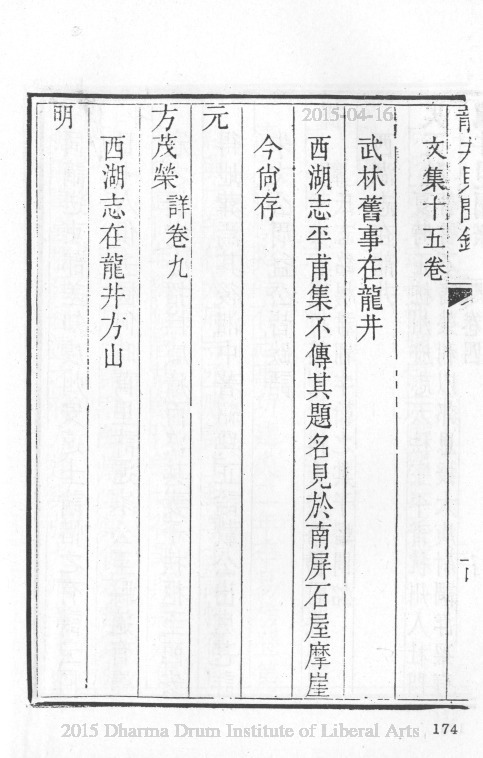 龍井見聞錄
文集十五卷
武林舊事在龍井
西湖志平甫集不傳其題名見於南屏石屋摩崖
今尙存
元
方茂榮 詳卷九
西湖志在龍井方山
明
2015-04-16
2015 Dharma Drum Institute of Liberal Arts
174